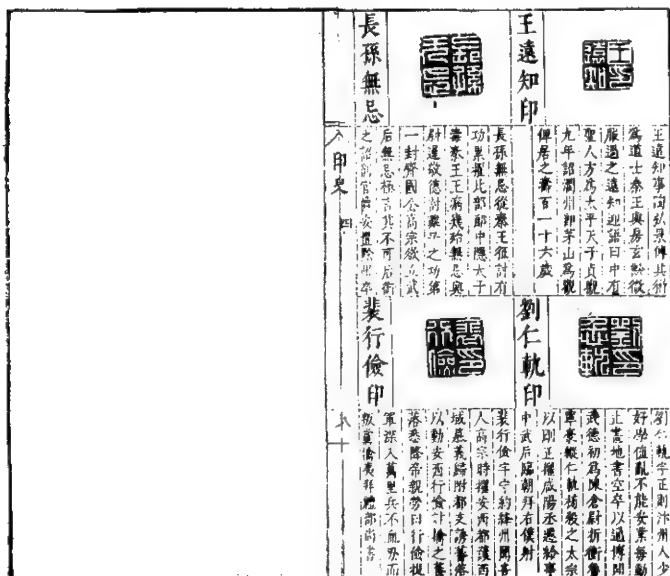 王遠知印
王遠知印
王遠知事陶弘景傳其術
爲道士秦王與房玄齡微
服過之遠知迎語曰中有
聖人方爲太平天子貞觀
九年詔潤州卽茅山爲觀
俾居之壽百一十六歲
長孫無忌
長孫無忌
長孫無忌從秦王征討有
功累擢比部郎中隱太子
毒秦王王病幾殆無忌與
尉遲敬德討難之功第
一封齊國公高宗欲立武
后無忌極言其不可后銜
之詔削官爵安置黔州卒
劉仁軌印
劉仁軌印
劉仁軌字正則汴州人少
好學值亂不能安業每動
止畫地書空卒以通博聞
武德初爲陳倉尉折衝魯
寧豪縱仁軌搒殺之太宗
以剛正擢咸陽丞遷給事
中武后臨朝拜右僕射
裴行儉印
裴行儉印
裴行儉字守約絳州聞喜
人高宗時擢安西都護西
域慕義歸附都支誘蕃落
以動安西行儉討擒之蕃
落悉降帝親勞曰行儉提
軍深入萬里兵不血刃而
叛黨擒夷拜禮部尚書
印史
四
九十